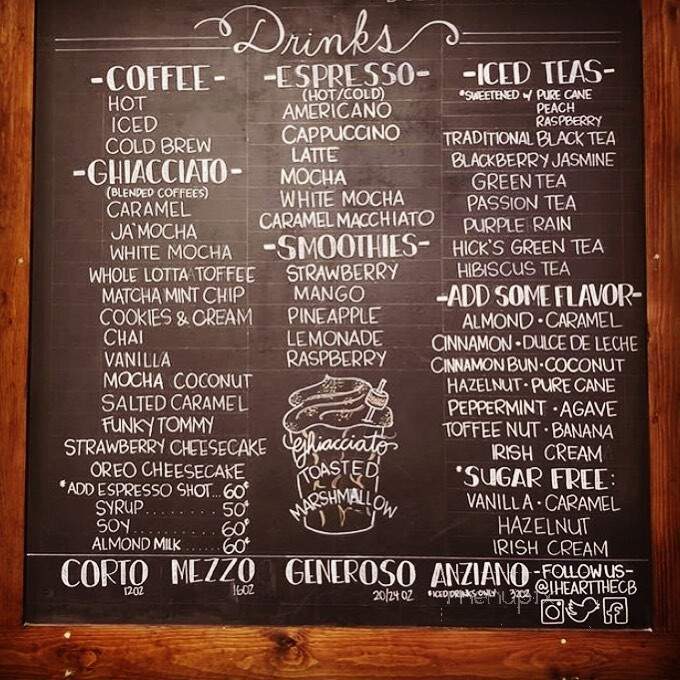 Drinks
-COFFEE-
HOT
ICED
COLD BREW
-GHIACCIATO-
(BLENDED COFFEES)
CARAMEL
JA'MOCHA
WHITE MOCHA
WHOLE LOTTA TOFFEE
MATCHA MINT CHIP
COOKIES & CREAM
CHAI
VANILLA
MOCHA COCONUT
SALTED CARAMEL
FUNKY TOMMY
STRAWBERRY CHEESECAKE
OREO CHEESECAKE
*ADD ESPRESSO SHOT... 60¢
SYRUP......... 50¢
SOY......... 60¢
ALMOND MILK ...... 60¢
-ESPRESSO-
(HOT/COLD)
AMERICANO
CAPPUCCINO
LATTE
MOCHA
WHITE MOCHA
CARAMEL MACCHIATO
-SMOOTHIES-
STRAWBERRY
MANGO
PINEAPPLE
LEMONADE
RASPBERRY
Ghiacciato
TOASTED
MARSHMALLOW
-ICED TEAS-
*SWEETENED w/ PURE CANE
PEACH
RASPBERRY
TRADITIONAL BLACK TEA
BLACKBERRY JASMINE
GREEN TEA
PASSION TEA
PURPLE RAIN
HICK'S GREEN TEA
HIBISCUS TEA
-ADD SOME FLAVOR-
ALMOND • CARAMEL
CINNAMON • DULCE DE LECHE
CINNAMON BUN • COCONUT
HAZELNUT • PURE CANE
PEPPERMINT • AGAVE
TOFFEE NUT • BANANA
IRISH CREAM
*SUGAR FREE:
VANILLA • CARAMEL
HAZELNUT
IRISH CREAM
CORTO 12OZ MEZZO 16OZ GENEROSO 20/24 OZ ANZIANO *ICED DRINKS ONLY 32OZ
-FOLLOW US-
@IHEARTTHECB